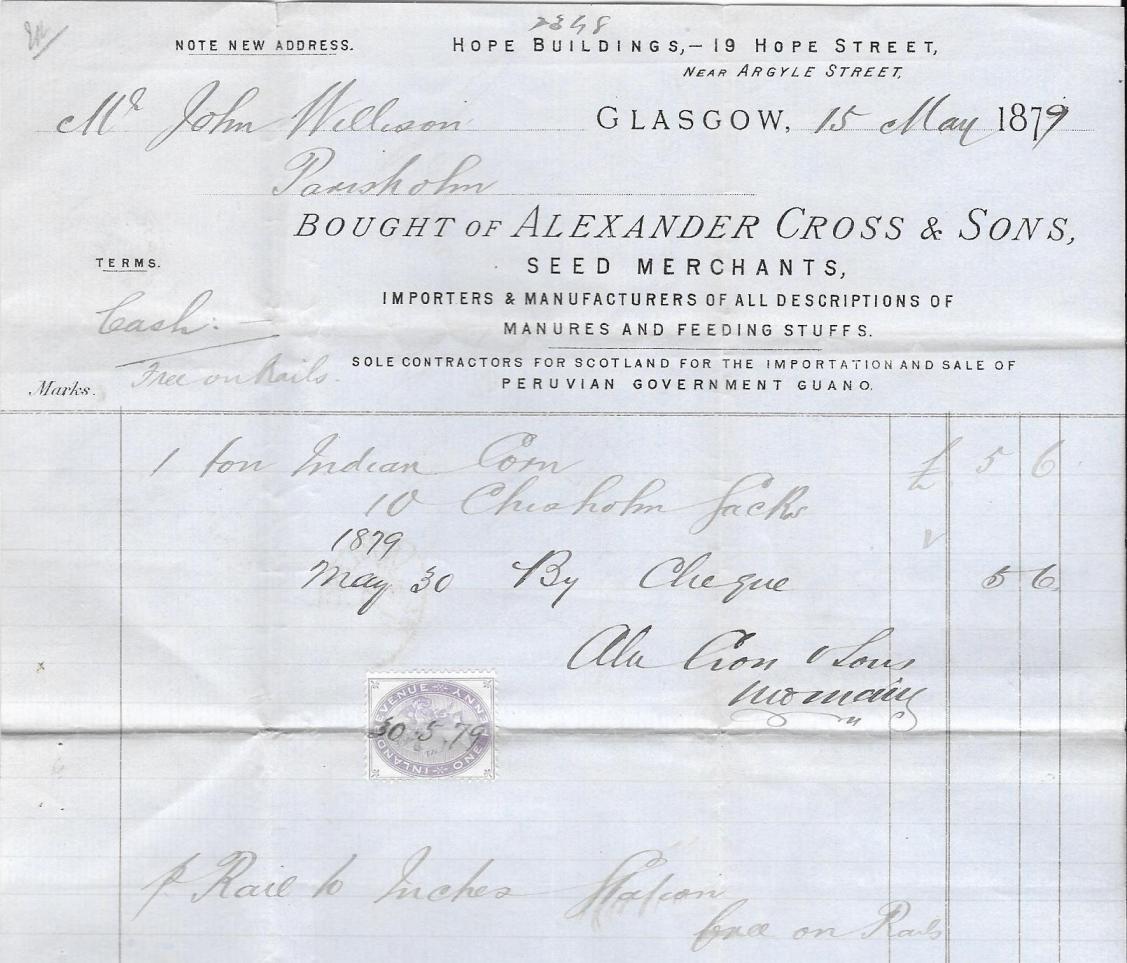 2348
NOTE NEW ADDRESS.
HOPE BUILDINGS,—19 HOPE STREET,
NEAR ARGYLE STREET,
GLASGOW, 15 May 1879
Mr John Willison
Parisholm
BOUGHT OF ALEXANDER CROSS & SONS,
SEED MERCHANTS,
IMPORTERS & MANUFACTURERS OF ALL DESCRIPTIONS OF
MANURES AND FEEDING STUFFS.
SOLE CONTRACTORS FOR SCOTLAND FOR THE IMPORTATION AND SALE OF
PERUVIAN GOVERNMENT GUANO.
TERMS.
Cash:—
Free on Rails.
Marks.
1 ton Indian Corn £ 5 6
10 Chisholm Sacks
1879
May 30 By Cheque 5 6
Alex Cross & Sons
INLAND REVENUE ONE PENNY
30.5.79
p Rail to Inches Station
free on Rails